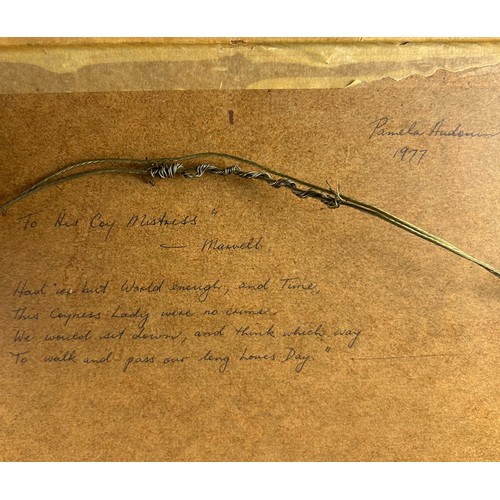 Pamela
1977
"To His Coy Mistress"
— Marvell
Had we but World enough, and Time,
This Coyness Lady were no crime.
We would sit down, and think which way
To walk and pass our long Loves Day."